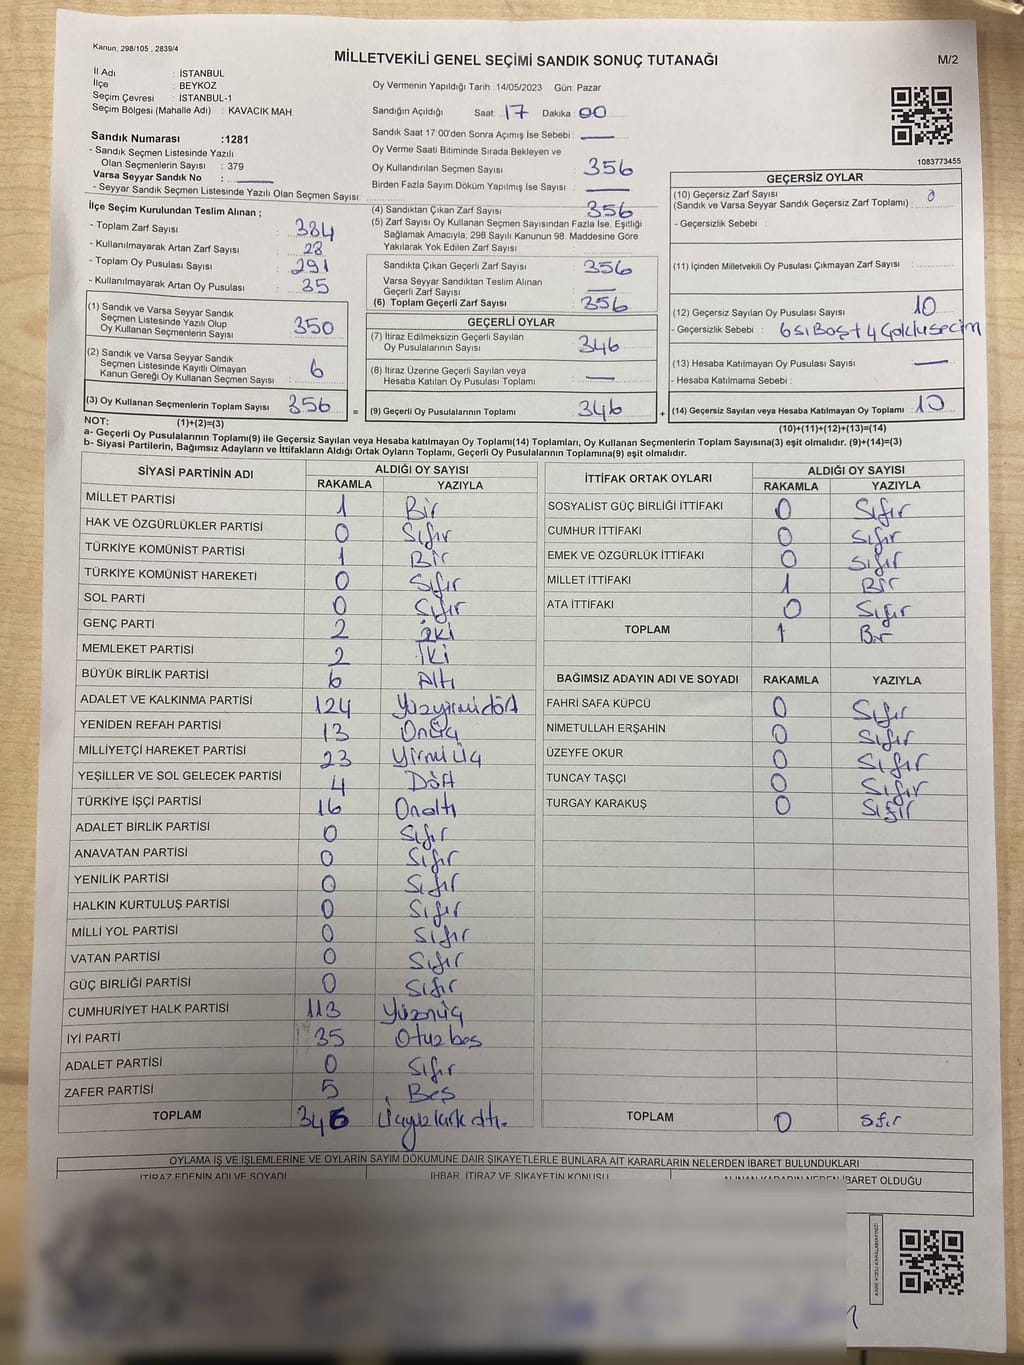 Kanun; 298/105 , 2839/4
MİLLETVEKİLİ GENEL SEÇİMİ SANDIK SONUÇ TUTANAĞI
M/2
İl Adı : İSTANBUL
İlçe : BEYKOZ
Seçim Çevresi : İSTANBUL-1
Seçim Bölgesi (Mahalle Adı) : KAVACIK MAH.
Sandık Numarası :1281
- Sandık Seçmen Listesinde Yazılı
Olan Seçmenlerin Sayısı : 379
Varsa Seyyar Sandık No :
- Seyyar Sandık Seçmen Listesinde Yazılı Olan Seçmen Sayısı:
Oy Vermenin Yapıldığı Tarih 14/05/2023 Gün: Pazar
Sandığın Açıldığı Saat: 17 Dakika: 00
Sandık Saat 17:00'den Sonra Açımış İse Sebebi :
Oy Verme Saati Bitiminde Sırada Bekleyen ve
Oy Kullandırılan Seçmen Sayısı : 356
Birden Fazla Sayım Döküm Yapılmış İse Sayısı :
1083773455
İlçe Seçim Kurulundan Teslim Alınan ;
- Toplam Zarf Sayısı : 384
- Kullanılmayarak Artan Zarf Sayısı : 28
- Toplam Oy Pusulası Sayısı : 291
- Kullanılmayarak Artan Oy Pusulası : 35
(1) Sandık ve Varsa Seyyar Sandık
Seçmen Listesinde Yazılı Olup
Oy Kullanan Seçmenlerin Sayısı : 350
(2) Sandık ve Varsa Seyyar Sandık
Seçmen Listesinde Kayıtlı Olmayan
Kanun Gereği Oy Kullanan Seçmen Sayısı : 6
(3) Oy Kullanan Seçmenlerin Toplam Sayısı : 356
(4) Sandıktan Çıkan Zarf Sayısı : 356
(5) Zarf Sayısı Oy Kullanan Seçmen Sayısından Fazla İse, Eşitliği
Sağlamak Amacıyla, 298 Sayılı Kanunun 98. Maddesine Göre
Yakılarak Yok Edilen Zarf Sayısı :
Sandıkta Çıkan Geçerli Zarf Sayısı : 356
Varsa Seyyar Sandıktan Teslim Alınan
Geçerli Zarf Sayısı :
(6) Toplam Geçerli Zarf Sayısı : 356
GEÇERLİ OYLAR
(7) İtiraz Edilmeksizin Geçerli Sayılan
Oy Pusulalarının Sayısı : 346
(8) İtiraz Üzerine Geçerli Sayılan veya
Hesaba Katılan Oy Pusulası Toplamı :
= (9) Geçerli Oy Pusulalarının Toplamı : 346
GEÇERSİZ OYLAR
(10) Geçersiz Zarf Sayısı
(Sandık ve Varsa Seyyar Sandık Geçersiz Zarf Toplamı) : 0
- Geçersizlik Sebebi :
(11) İçinden Milletvekili Oy Pusulası Çıkmayan Zarf Sayısı :
(12) Geçersiz Sayılan Oy Pusulası Sayısı : 10
- Geçersizlik Sebebi : 6sı Boş + 4 Çoklu seçim
(13) Hesaba Katılmayan Oy Pusulası Sayısı :
- Hesaba Katılmama Sebebi :
+ (14) Geçersiz Sayılan veya Hesaba Katılmayan Oy Toplamı : 10
NOT: (1)+(2)=(3)
(10)+(11)+(12)+(13)=(14)
a- Geçerli Oy Pusulalarının Toplamı(9) ile Geçersiz Sayılan veya Hesaba katılmayan Oy Toplamı(14) Toplamları, Oy Kullanan Seçmenlerin Toplam Sayısına(3) eşit olmalıdır. (9)+(14)=(3)
b- Siyasi Partilerin, Bağımsız Adayların ve İttifakların Aldığı Ortak Oyların Toplamı, Geçerli Oy Pusulalarının Toplamına(9) eşit olmalıdır.
SİYASİ PARTİNİN ADI ALDIĞI OY SAYISI
RAKAMLA YAZIYLA
MİLLET PARTİSİ 1 Bir
HAK VE ÖZGÜRLÜKLER PARTİSİ 0 Sıfır
TÜRKİYE KOMÜNİST PARTİSİ 1 Bir
TÜRKİYE KOMÜNİST HAREKETİ 0 Sıfır
SOL PARTİ 0 Sıfır
GENÇ PARTİ 2 İki
MEMLEKET PARTİSİ 2 İki
BÜYÜK BİRLİK PARTİSİ 6 Altı
ADALET VE KALKINMA PARTİSİ 124 Yüzyirmidört
YENİDEN REFAH PARTİSİ 13 Onüç
MİLLİYETÇİ HAREKET PARTİSİ 23 Yirmiüç
YEŞİLLER VE SOL GELECEK PARTİSİ 4 Dört
TÜRKİYE İŞÇİ PARTİSİ 16 Onaltı
ADALET BİRLİK PARTİSİ 0 Sıfır
ANAVATAN PARTİSİ 0 Sıfır
YENİLİK PARTİSİ 0 Sıfır
HALKIN KURTULUŞ PARTİSİ 0 Sıfır
MİLLİ YOL PARTİSİ 0 Sıfır
VATAN PARTİSİ 0 Sıfır
GÜÇ BİRLİĞİ PARTİSİ 0 Sıfır
CUMHURİYET HALK PARTİSİ 113
İYİ PARTİ 35 Otuzbeş
ADALET PARTİSİ 0 Sıfır
ZAFER PARTİSİ 5 Beş
TOPLAM 346 Üçyüzkırkaltı.
İTTİFAK ORTAK OYLARI ALDIĞI OY SAYISI
RAKAMLA YAZIYLA
SOSYALİST GÜÇ BİRLİĞİ İTTİFAKI 0 Sıfır
CUMHUR İTTİFAKI 0 Sıfır
EMEK VE ÖZGÜRLÜK İTTİFAKI 0 Sıfır
MİLLET İTTİFAKI 1 Bir
ATA İTTİFAKI 0 Sıfır
TOPLAM 1 Bir
BAĞIMSIZ ADAYIN ADI VE SOYADI RAKAMLA YAZIYLA
FAHRİ SAFA KÜPCÜ 0 Sıfır
NİMETULLAH ERŞAHİN 0 Sıfır
ÜZEYFE OKUR 0 Sıfır
TUNCAY TAŞÇI 0 Sıfır
TURGAY KARAKUŞ 0 Sıfır
TOPLAM 0 Sıfır
OYLAMA İŞ VE İŞLEMLERİNE VE OYLARIN SAYIM DÖKÜMÜNE DAİR ŞİKAYETLERLE BUNLARA AİT KARARLARIN NELERDEN İBARET BULUNDUKLARI
İTİRAZ EDENİN ADI VE SOYADI İHBAR, İTİRAZ VE ŞİKAYETİN KONUSU ALINAN KARARIN NEDEN İBARET OLDUĞU
KARE KODU KARALAMAYINIZ!